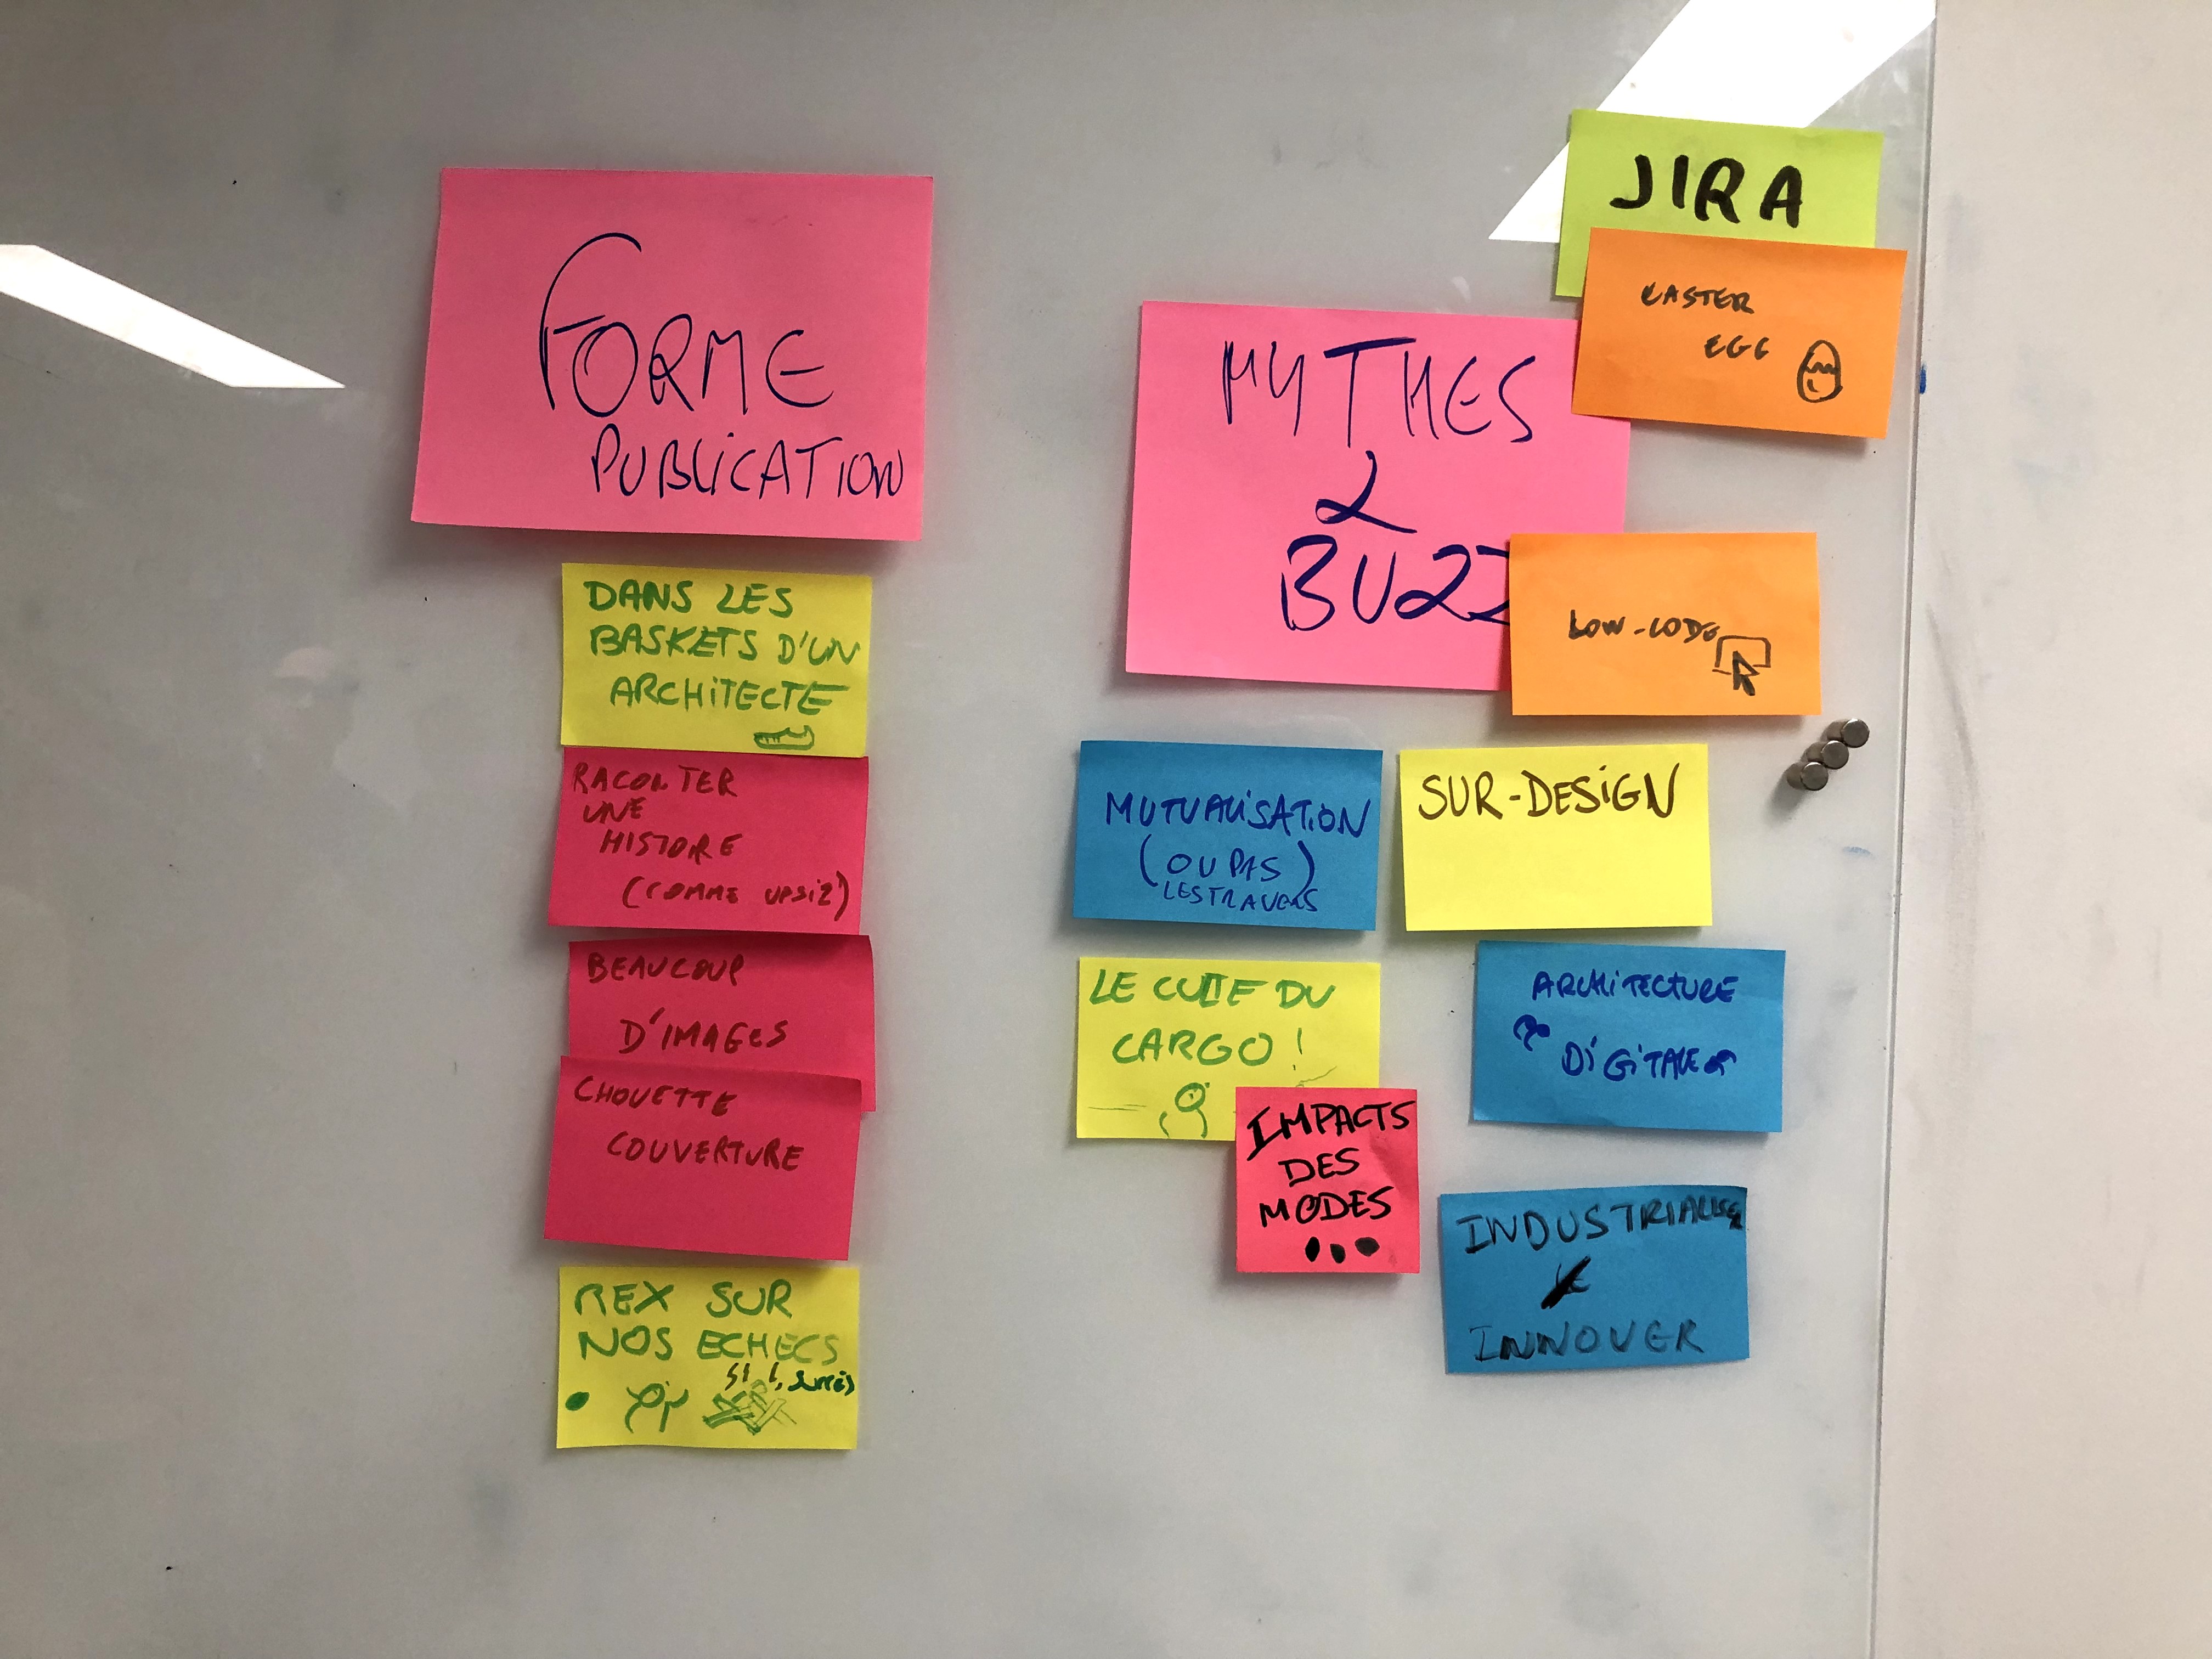 FORME
PUBLICATION
DANS LES
BASKETS D'UN
ARCHITECTE
RACONTER
UNE
HISTOIRE
(COMME UPSIZ)
BEAUCOUP
D'IMAGES
CHOUETTE
COUVERTURE
REX SUR
NOS ECHECS
succès
JIRA
EASTER
EGG
MYTHES
&
BUZZ
LOW-CODE
MUTUALISATION
(OU PAS)
LES TRAVERS
SUR-DESIGN
LE CULTE DU
CARGO !
ARCHITECTURE
DIGITALE
IMPACTS
DES
MODES
...
INDUSTRIALISER
INNOVER